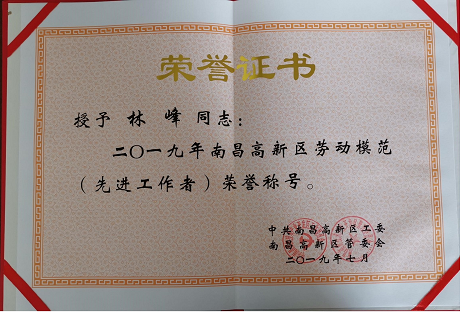 荣誉证书
授予 林 峰 同志：
二〇一九年南昌高新区劳动模范
（先进工作者）荣誉称号。
中共南昌高新区工委
南昌高新区管委会
二〇一九年七月